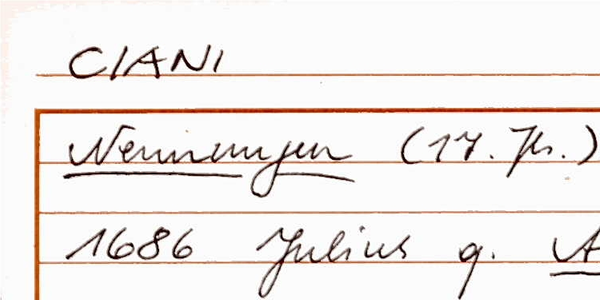 CIANI
Nenningen (17. Jh.)
1686 Julius g. A